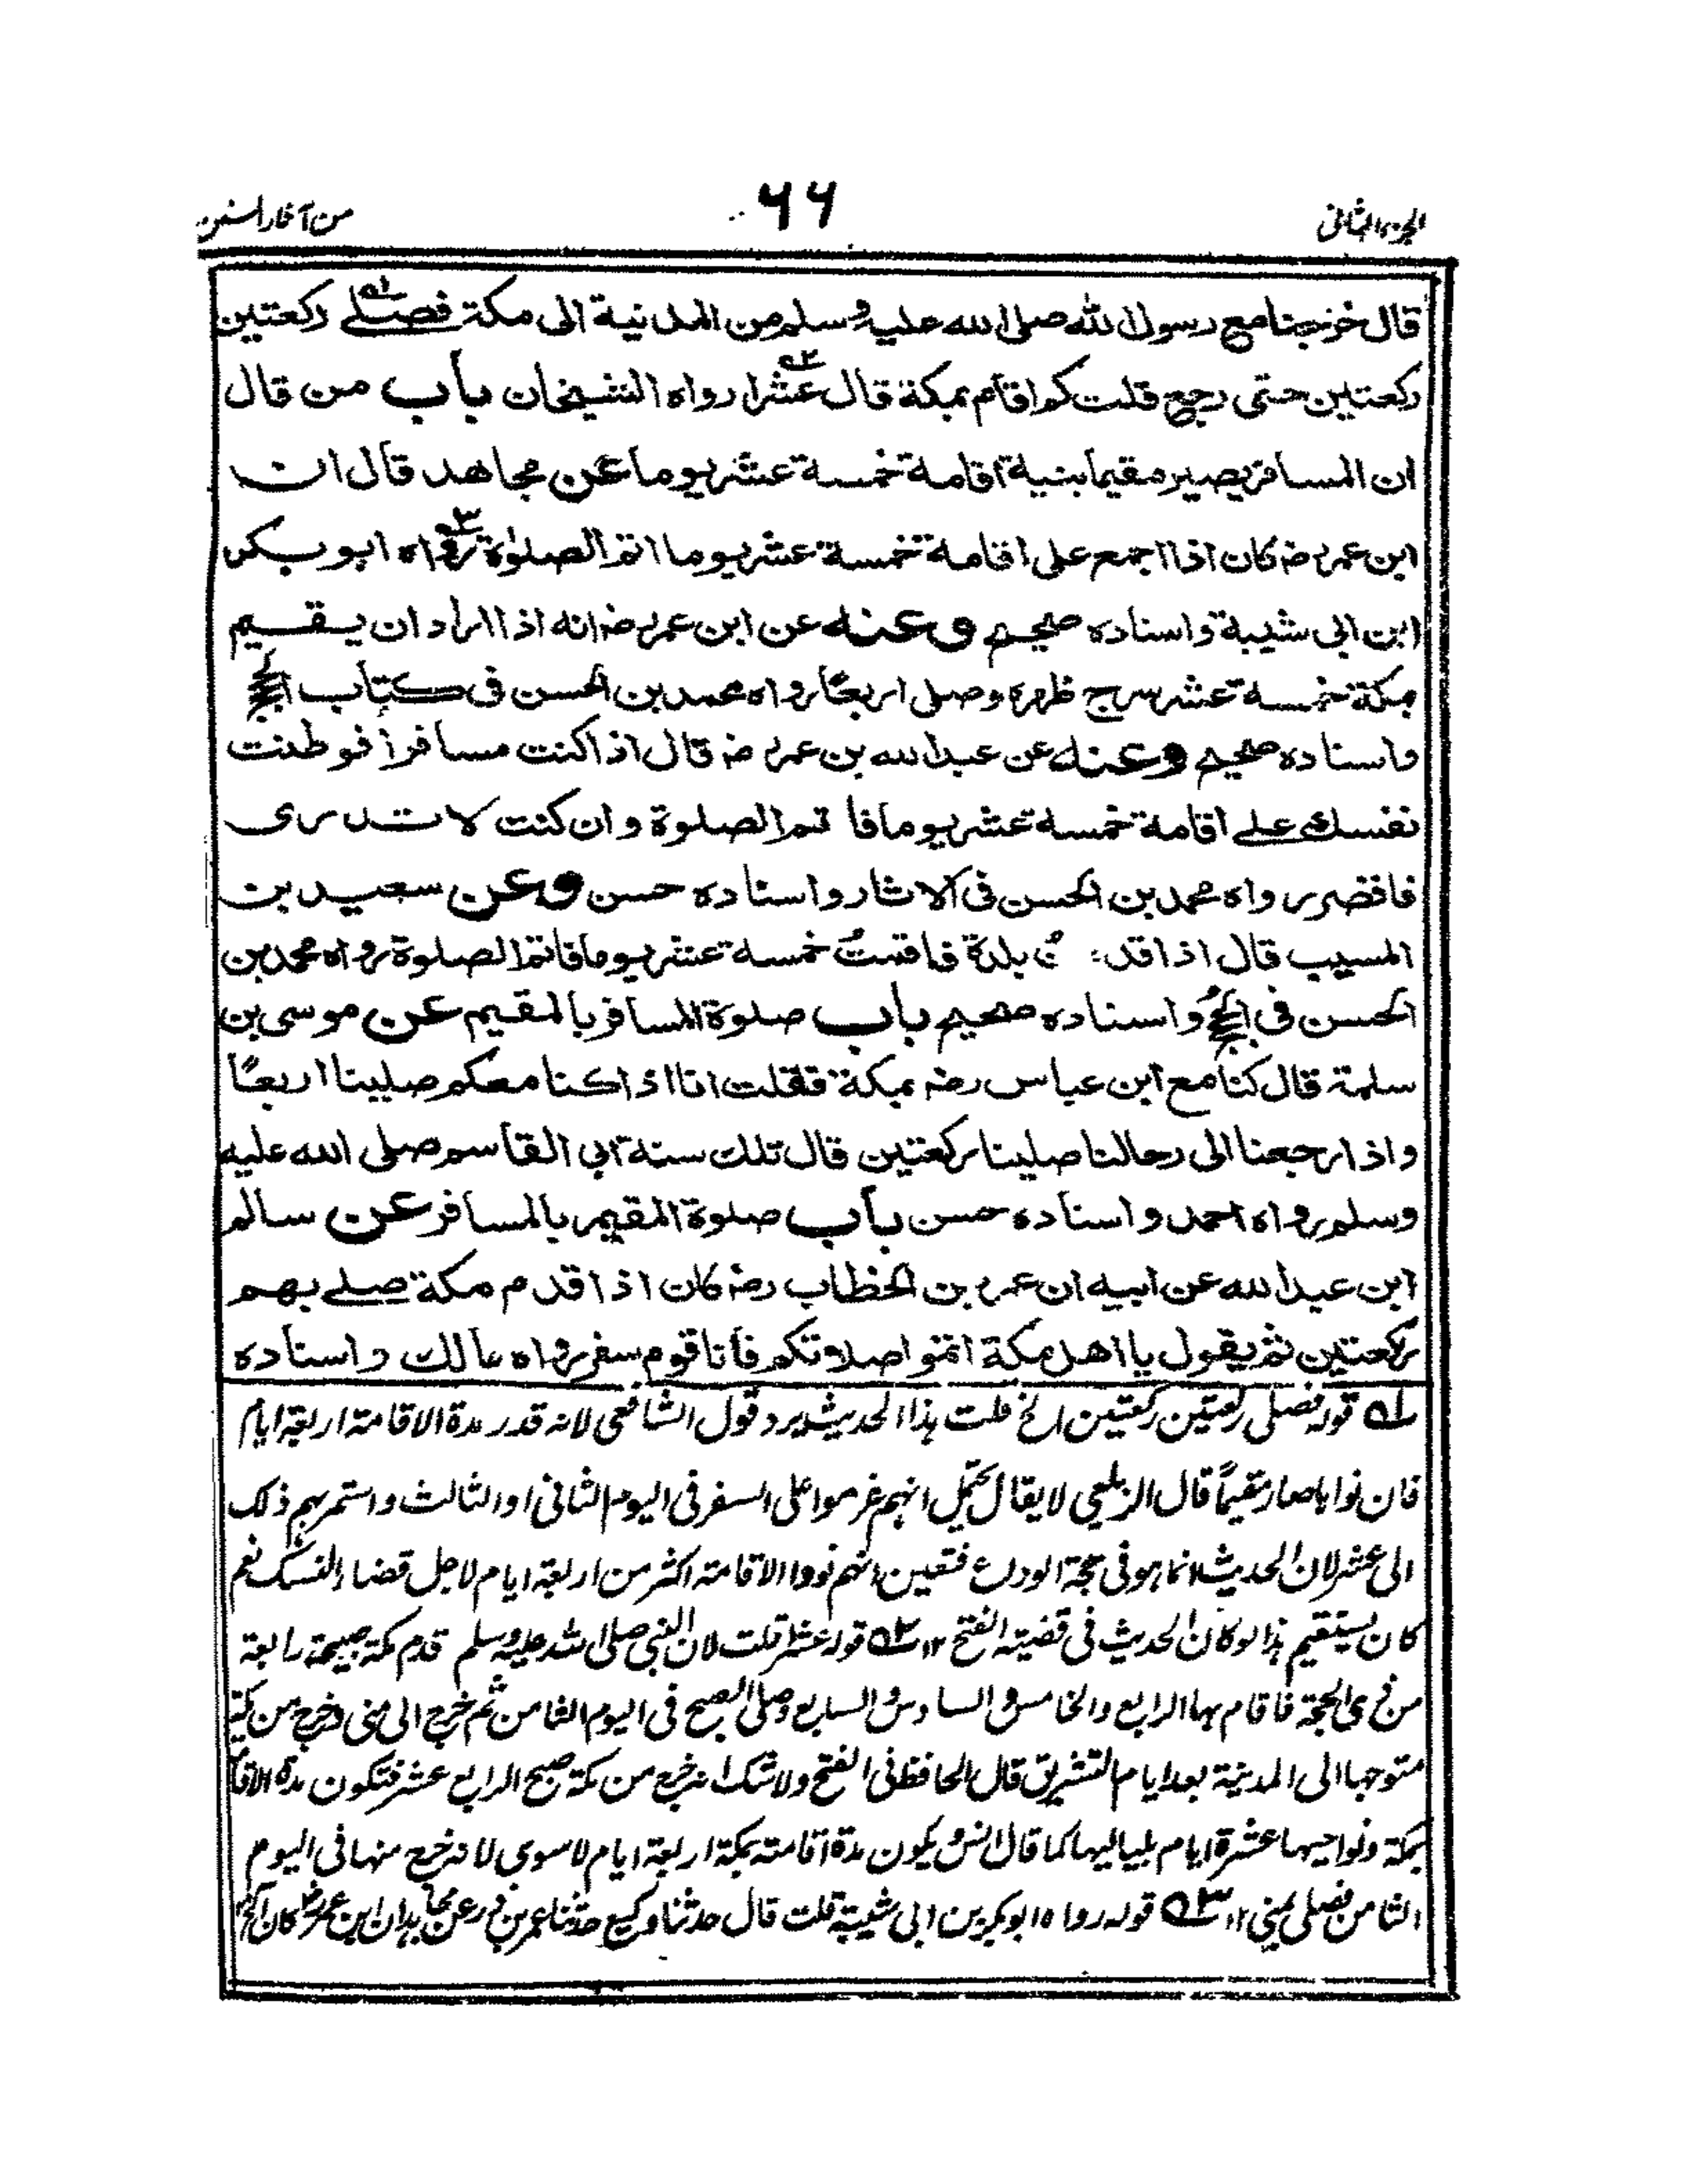 الجزء الثانی
۶۶
من آثار السنن
قال خرجنا مع رسول الله صلی الله علیه وسلم من المدنیة الی مکة فصلے رکعتین
رکعتین حتی رجع قلت کم اقام بمکة قال عشرا رواه الشیخان باب من قال
ان المسافر یصیر مقیما بنیة اقامة خمسة عشر یوما عن مجاهد قال ان
ابن عمر رضـ کان اذا اجمع علی اقامة خمسة عشر یوما اتم الصلوٰة رواه ابو بکر
ابن ابی شیبة واسناده صحیح وعنه عن ابن عمر رضـ انه اذا اراد ان یقیم
بمکة خمسة عشر سرج ظهره وصلی اربعًا رواه محمد بن الحسن فی کتاب الحجج
واسناده صحیح وعنه عن عبد الله بن عمر رضـ قال اذا کنت مسافرًا فوطنت
نفسك علے اقامة خمسة عشر یوما فاتمم الصلوة وان کنت لا تدری
فاقصر رواه محمد بن الحسن فی الآثار واسناده حسن وعن سعید بن
المسیب قال اذا قدمت بلدة فاقمت خمسة عشر یوما فاتم الصلوة رواه محمد بن
الحسن فی الحجج واسناده صحیح باب صلوة المسافر بالمقیم عن موسی بن
سلمة قال کنا مع ابن عباس رضـ بمکة فقلت انا اذا کنا معکم صلینا اربعًا
واذا رجعنا الی رحالنا صلینا رکعتین قال تلك سنة ابی القاسم صلی الله علیه
وسلم رواه احمد واسناده حسن باب صلوة المقیم بالمسافر عن سالم
ابن عبد الله عن ابیه ان عمر بن الخطاب رضـ کان اذا قدم مکة صلے بهم
رکعتین ثم یقول یا اهل مکة اتموا صلاتکم فانا قوم سفر رواه مالك واسناده
ـ۱ قوله فصلی رکعتین رکعتین الخ قلت هذا الحدیث یرد قول الشافعی لانه قدر مدة الاقامة اربعة ایام
فان نواها صار مقیمًا قال الزیلعی لا یقال یحتمل انهم عزموا علی السفر فی الیوم الثانی او الثالث واستمر بهم ذلک
الی عشر لان الحدیث انما هو فی حجة الوداع فتعین انهم نووا الاقامة اکثر من اربعة ایام لاجل قضاء النسک نعم
کان یستقیم هذا لو کان الحدیث فی قضیة الفتح ۱۲ ـ۲ قوله عشرا قلت لان النبی صلی الله علیه وسلم قدم مکة صبیحة رابعة
من ذی الحجة فاقام بها الرابع والخامس والسادس والسابع وصلی الصبح فی الیوم الثامن ثم خرج الی منی وخرج من مکة
متوجها الی المدینة بعد ایام التشریق قال الحافظ فی الفتح ولا شک انه خرج من مکة صبح الرابع عشر فتکون مدة الاقامة
بمکة ونواحیها عشرة ایام بلیالیها کما قال انس ویکون مدة اقامته بمکة اربعة ایام لا سوی لانه خرج منها فی الیوم
الثامن فصلی بمنی ۱۲ ـ۳ قوله رواه ابو بکر بن ابی شیبة قلت قال حدثنا وکیع حدثنا عمر بن ذر عن مجاهد ان ابن عمر رضـ کان